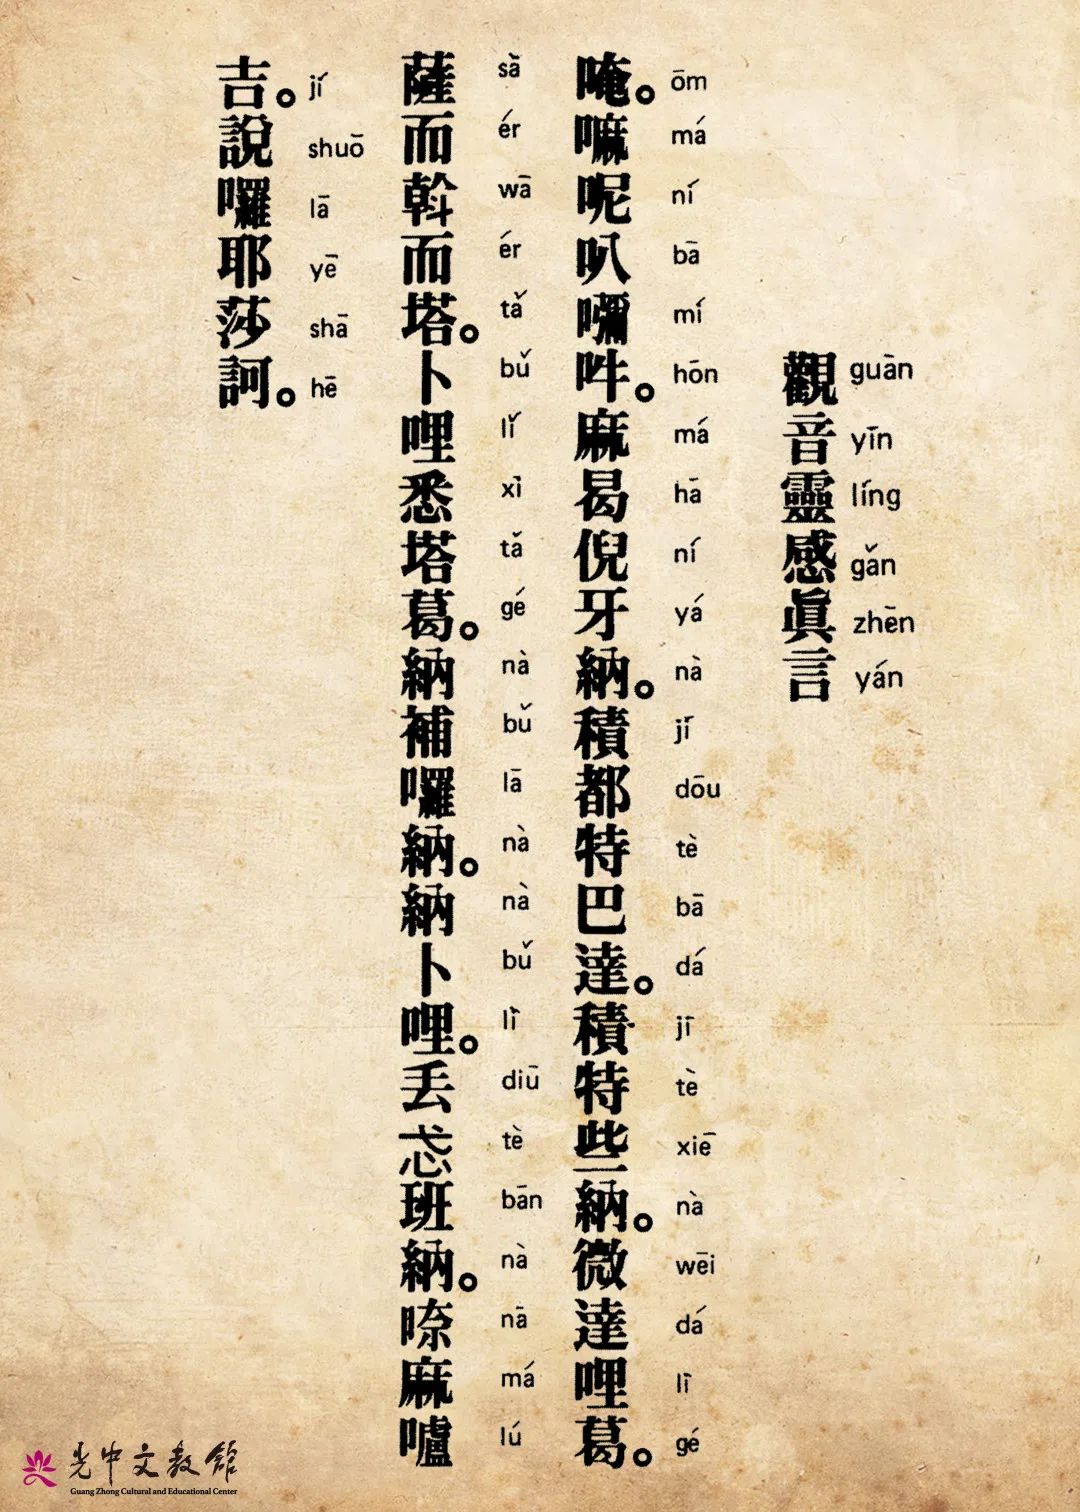 觀音靈感眞言
guàn yīn líng gǎn zhēn yán
唵。嘛呢叭嚩吽。麻曷倪牙納。積都特巴達。積特些納。微達哩葛。
ōm má ní bā mí hōn má hā ní yá nà jí dōu tè bā dá jī tè xiē nà wēi dá lī gé
薩而斡而塔。卜哩悉塔葛。納補囉納。納卜哩。丟忒班納。㖠麻嚧
sà ér wā ér tǎ bǔ lǐ xì tǎ gé nà bǔ lā nà nà bǔ lì diū tè bān nà nā má lú
吉。說囉耶莎訶。
jí shuō lā yē shā hē
光中文教館
Guang Zhong Cultural and Educational Center